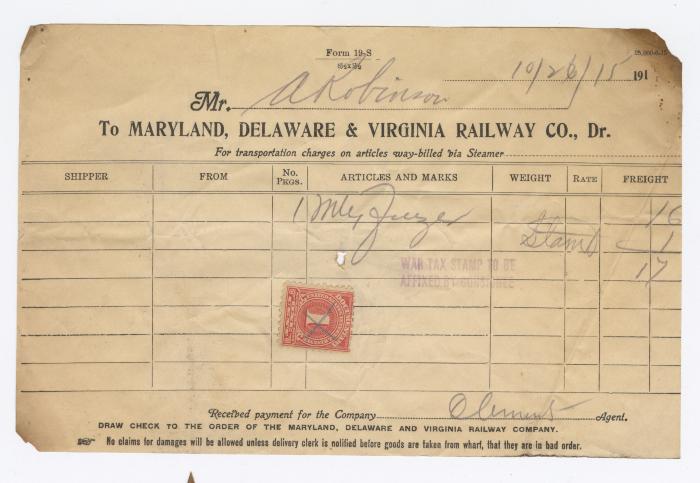 Form 19-S
8½x5½
10/26/15 191
Mr. A Robinson
To MARYLAND, DELAWARE & VIRGINIA RAILWAY CO., Dr.
For transportation charges on articles way-billed via Steamer
SHIPPER FROM No. Pkgs. ARTICLES AND MARKS WEIGHT RATE FREIGHT
1 Mty 16
Stamp 1
17
WAR TAX STAMP TO BE
AFFIXED BY CONSIGNEE
1
Received payment for the Company Clements Agent.
DRAW CHECK TO THE ORDER OF THE MARYLAND, DELAWARE AND VIRGINIA RAILWAY COMPANY.
No claims for damages will be allowed unless delivery clerk is notified before goods are taken from wharf, that they are in bad order.